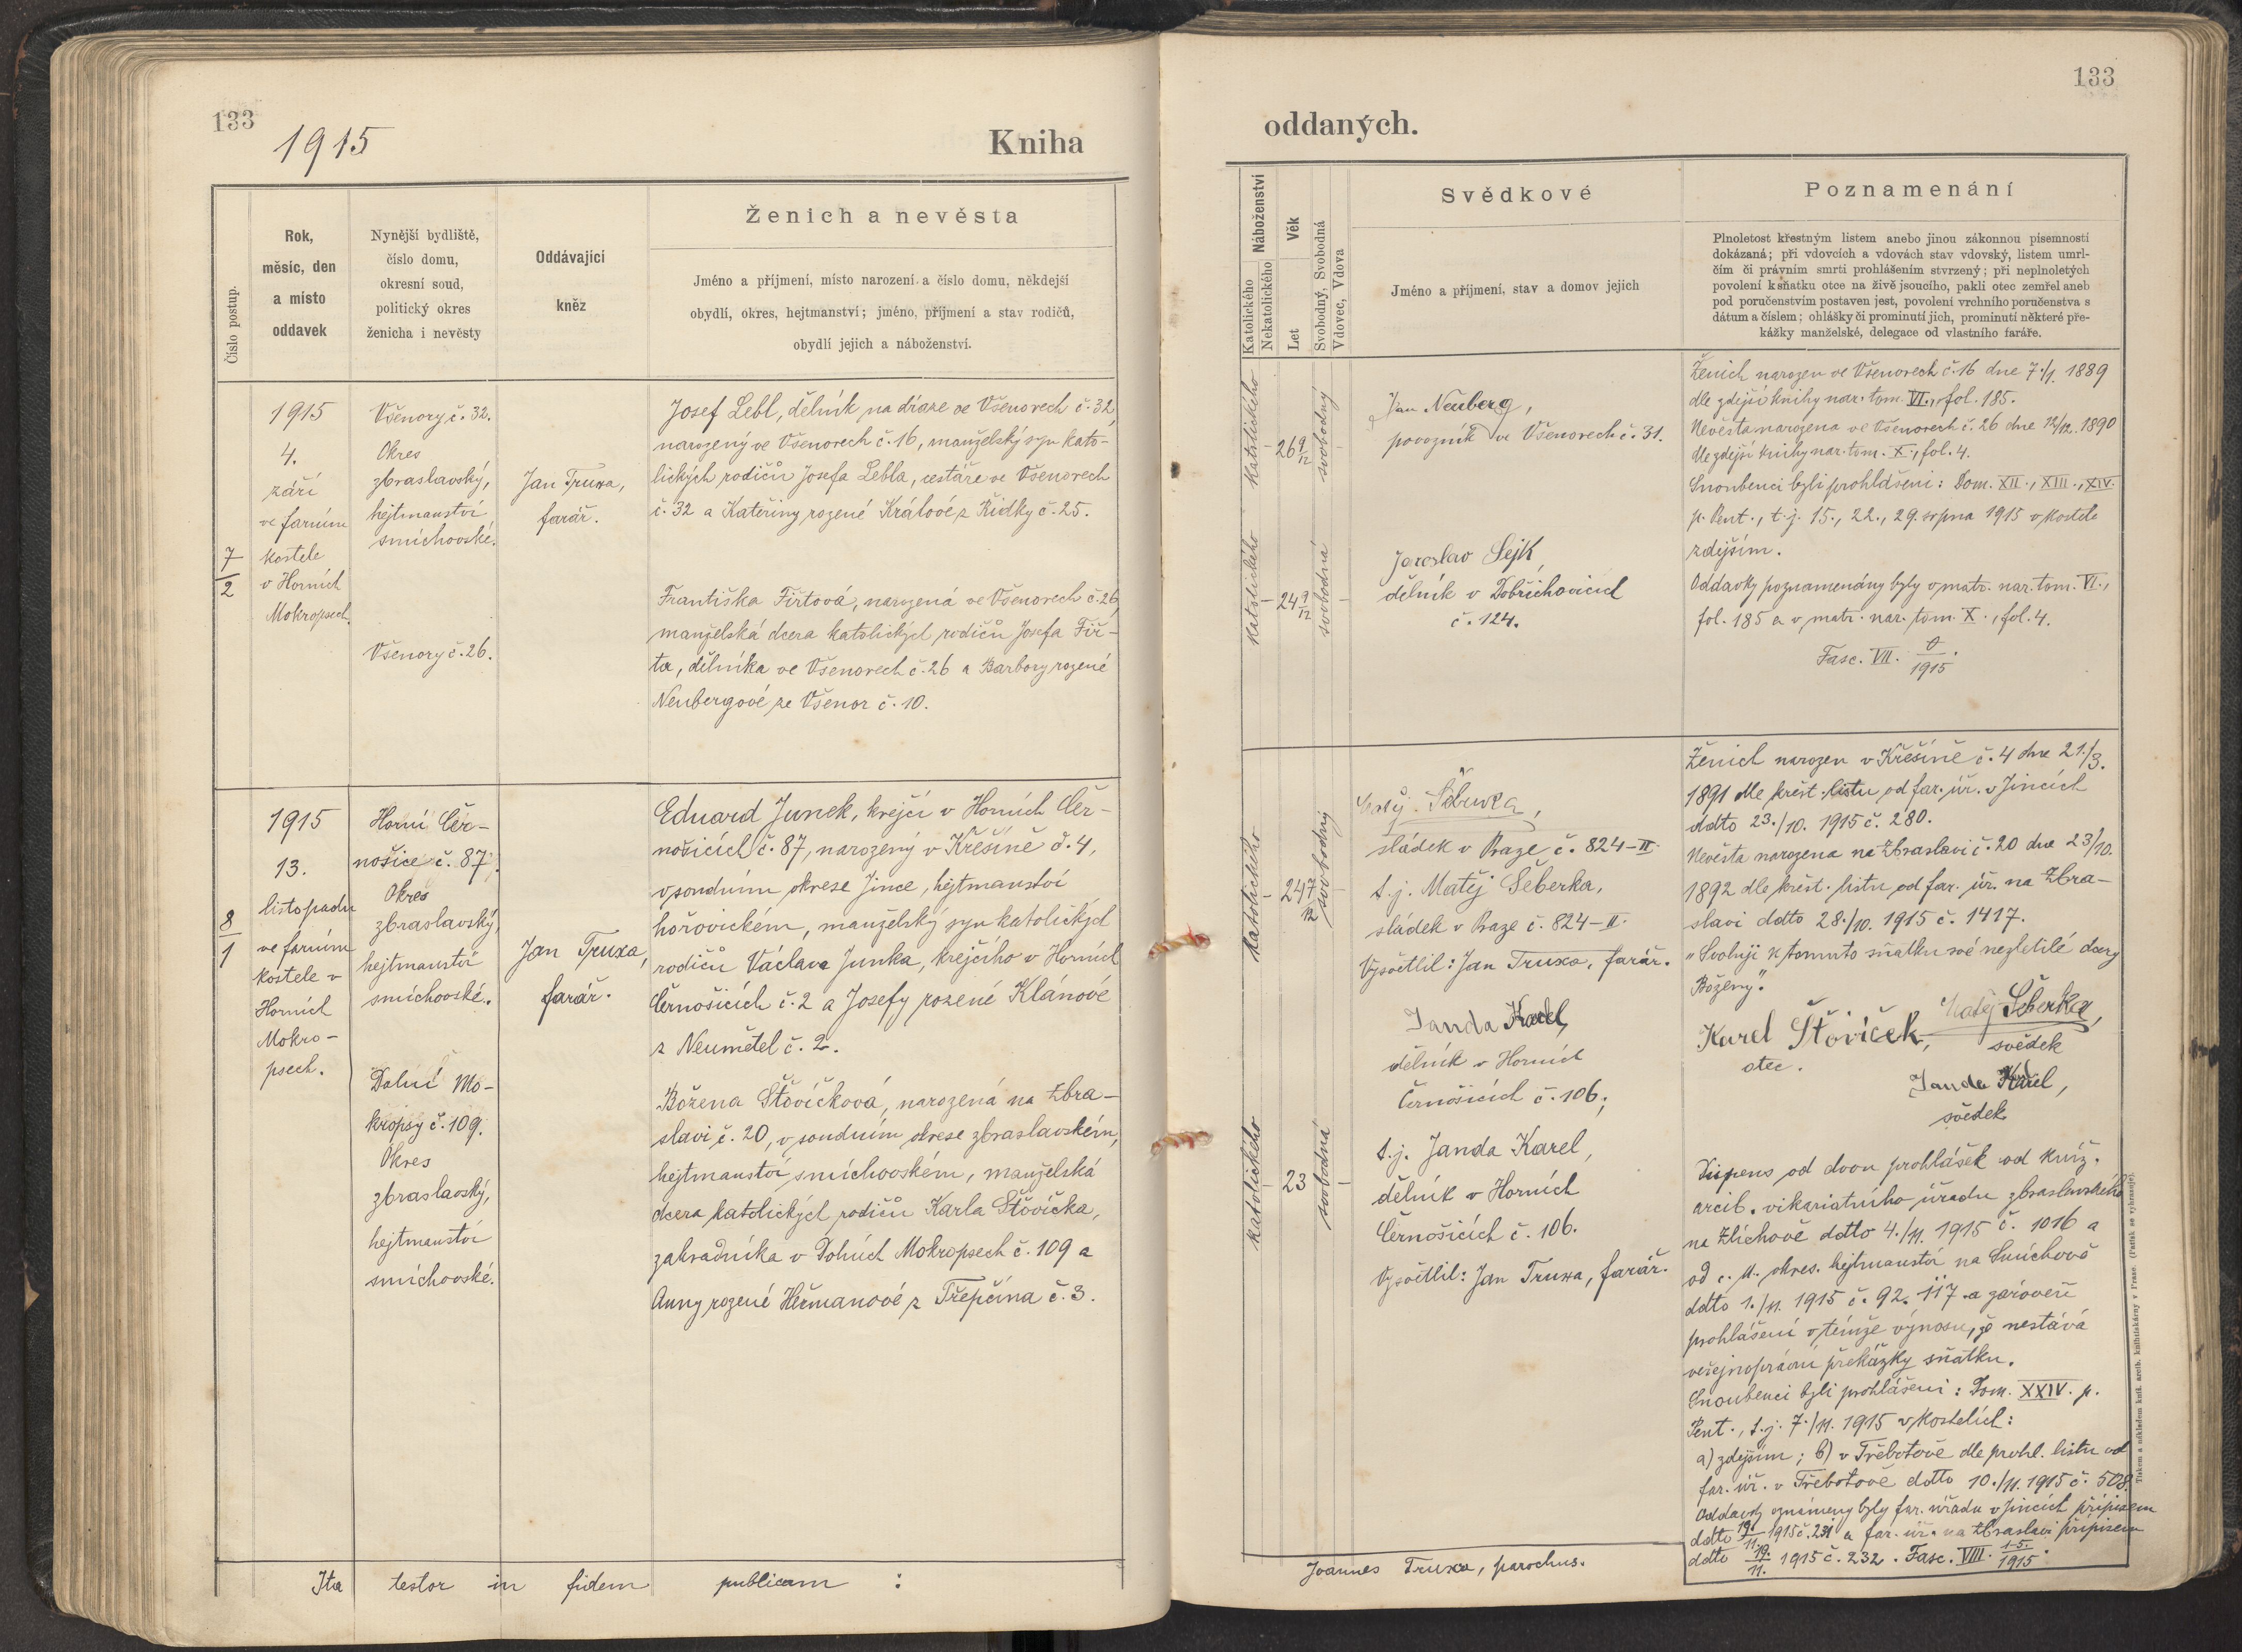 133
1915
Kniha
Číslo postup.
Rok,
měsíc, den
a místo
oddavek
Nynější bydliště,
číslo domu,
okresní soud,
politický okres
ženicha i nevěsty
Oddávající
kněz
Ženich a nevěsta
Jméno a příjmení, místo narození a číslo domu, někdejší
obydlí, okres, hejtmanství; jméno, příjmení a stav rodičů,
obydlí jejich a náboženství.
7
2
1915
4.
září
ve farním
kostele
v Horních
Mokropsech.
Všenory č. 32.
Okres
zbraslavský,
hejtmanství
smíchovské.
Všenory č. 26.
Jan Truxa,
farář.
Josef Lebl, dělník na dráze ve Všenorech č. 32,
narozený ve Všenorech č. 16, manželský syn kato-
lických rodičů Josefa Lebla, cestáře ve Všenorech
č. 32 a Kateřiny rozené Králové z Řidky č. 25.
Františka Fiřtová, narozená ve Všenorech č. 26,
manželská dcera katolických rodičů Josefa Fiř-
ta, dělníka ve Všenorech č. 26 a Barbory rozené
Neubergové ze Všenor č. 10.
8
1
1915
13.
listopadu
ve farním
kostele v
Horních
Mokro-
psech.
Horní Čer-
nošice č. 87.
Okres
zbraslavský,
hejtmanství
smíchovské.
Dolní Mo-
kropsy č. 109.
Okres
zbraslavský,
hejtmanství
smíchovské.
Jan Truxa,
farář.
Eduard Junek, krejčí v Horních Čer-
nošicích č. 87, narozený v Křešíně č. 4,
v soudním okrese Jince, hejtmanství
hořovickém, manželský syn katolických
rodičů Václava Junka, krejčího v Horních
Černošicích č. 2 a Josefy rozené Klánové
z Neumětel č. 2.
Božena Šťovíčková, narozená na Zbra-
slavi č. 20, v soudním okrese zbraslavském,
hejtmanství smíchovském, manželská
dcera katolických rodičů Karla Šťovíčka,
zahradníka v Dolních Mokropsech č. 109 a
Anny rozené Heřmanové z Třepčína č. 3.
Ita testor in fidem publicam :
133
oddaných.
Náboženství
Katolického
Nekatolického
Věk
Let
Svobodný, Svobodná
Vdovec, Vdova
Svědkové
Jméno a příjmení, stav a domov jejich
Poznamenání
Plnoletost křestným listem anebo jinou zákonnou písemností
dokázaná; při vdovcích a vdovách stav vdovský, listem umrl-
čím či právním smrti prohlášením stvrzený; při neplnoletých
povolení k sňatku otce na živě jsoucího, pakli otec zemřel aneb
pod poručenstvím postaven jest, povolení vrchního poručenstva s
dátum a číslem; ohlášky či prominutí jich, prominutí některé pře-
kážky manželské, delegace od vlastního faráře.
katolického
26 9/12
svobodný
katolického
24 9/12
svobodná
Jan Neuberg,
povozník ve Všenorech č. 31.
Jaroslav Sejk,
dělník v Dobřichovicích
č. 124.
Ženich narozen ve Všenorech č. 16 dne 7./1. 1889
dle zdejší knihy nar. tom. VI., fol. 185.
Nevěsta narozena ve Všenorech č. 26 dne 12/12. 1890
dle zdejší knihy nar. tom. X., fol. 4.
Snoubenci byli prohlášeni: Dom. XII., XIII., XIV.
p. Pent., t. j. 15., 22., 29. srpna 1915 v kostele
zdejším.
Oddavky poznamenány byly v matr. nar. tom. VI.,
fol. 185 a v matr. nar. tom. X., fol. 4.
Fasc. VII. /1915.
katolického
24 7/12
svobodný
katolického
23
svobodná
Matěj Šeberka,
sládek v Praze č. 824-II.
t. j. Matěj Šeberka,
sládek v Praze č. 824-II.
Vysvětlil: Jan Truxa, farář.
Janda Karel,
dělník v Horních
Černošicích č. 106;
t. j. Janda Karel,
dělník v Horních
Černošicích č. 106.
Vysvětlil: Jan Truxa, farář.
Ženich narozen v Křešíně č. 4 dne 21./3.
1891 dle křest. listu od far. úř. v Jincích
ddto 23./10. 1915 č. 280.
Nevěsta narozena na Zbraslavi č. 20 dne 23/10.
1892 dle křest. listu od far. úř. na Zbra-
slavi ddto 28./10. 1915 č. 1417.
„Svoluji k tomuto sňatku své nezletilé dcery
Boženy."
Karel Šťovíček,
otec.
Matěj Šeberka,
svědek
Janda Karel,
svědek
Dispens od dvou prohlášek od kníž.
arcib. vikariatního úřadu zbraslavského
na Zlíchově ddto 4./11. 1915 č. 1016 a
od c. k. okres. hejtmanství na Smíchově
ddto 1./11. 1915 č. 92.117 a zároveň
prohlášení v témže výnosu, že nestává
veřejnoprávní překážky sňatku.
Snoubenci byli prohlášeni: Dom. XXIV. p.
Pent., t. j. 7./11. 1915 v kostelích:
a) zdejším; b) v Třebotově dle prohl. listu od
far. úř. v Třebotově ddto 10./11. 1915 č. 508.
Oddavky oznámeny byly far. úřadu v Jincích přípisem
ddto 19./11. 1915 č. 231 a far. úř. na Zbraslavi přípisem
ddto 19./11. 1915 č. 232. Fasc. VIII. 1-5./1915.
Joannes Truxa, parochus.
Tiskem a nákladem kníž. arcib. knihtiskárny v Praze. (Patisk se vyhrazuje).